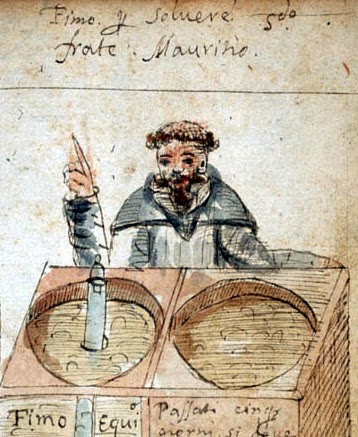 Fimo. ꝑ Soluere. 2do.
frate. Mauritio.
Fimo
Equi
Passati cinq
giorni si